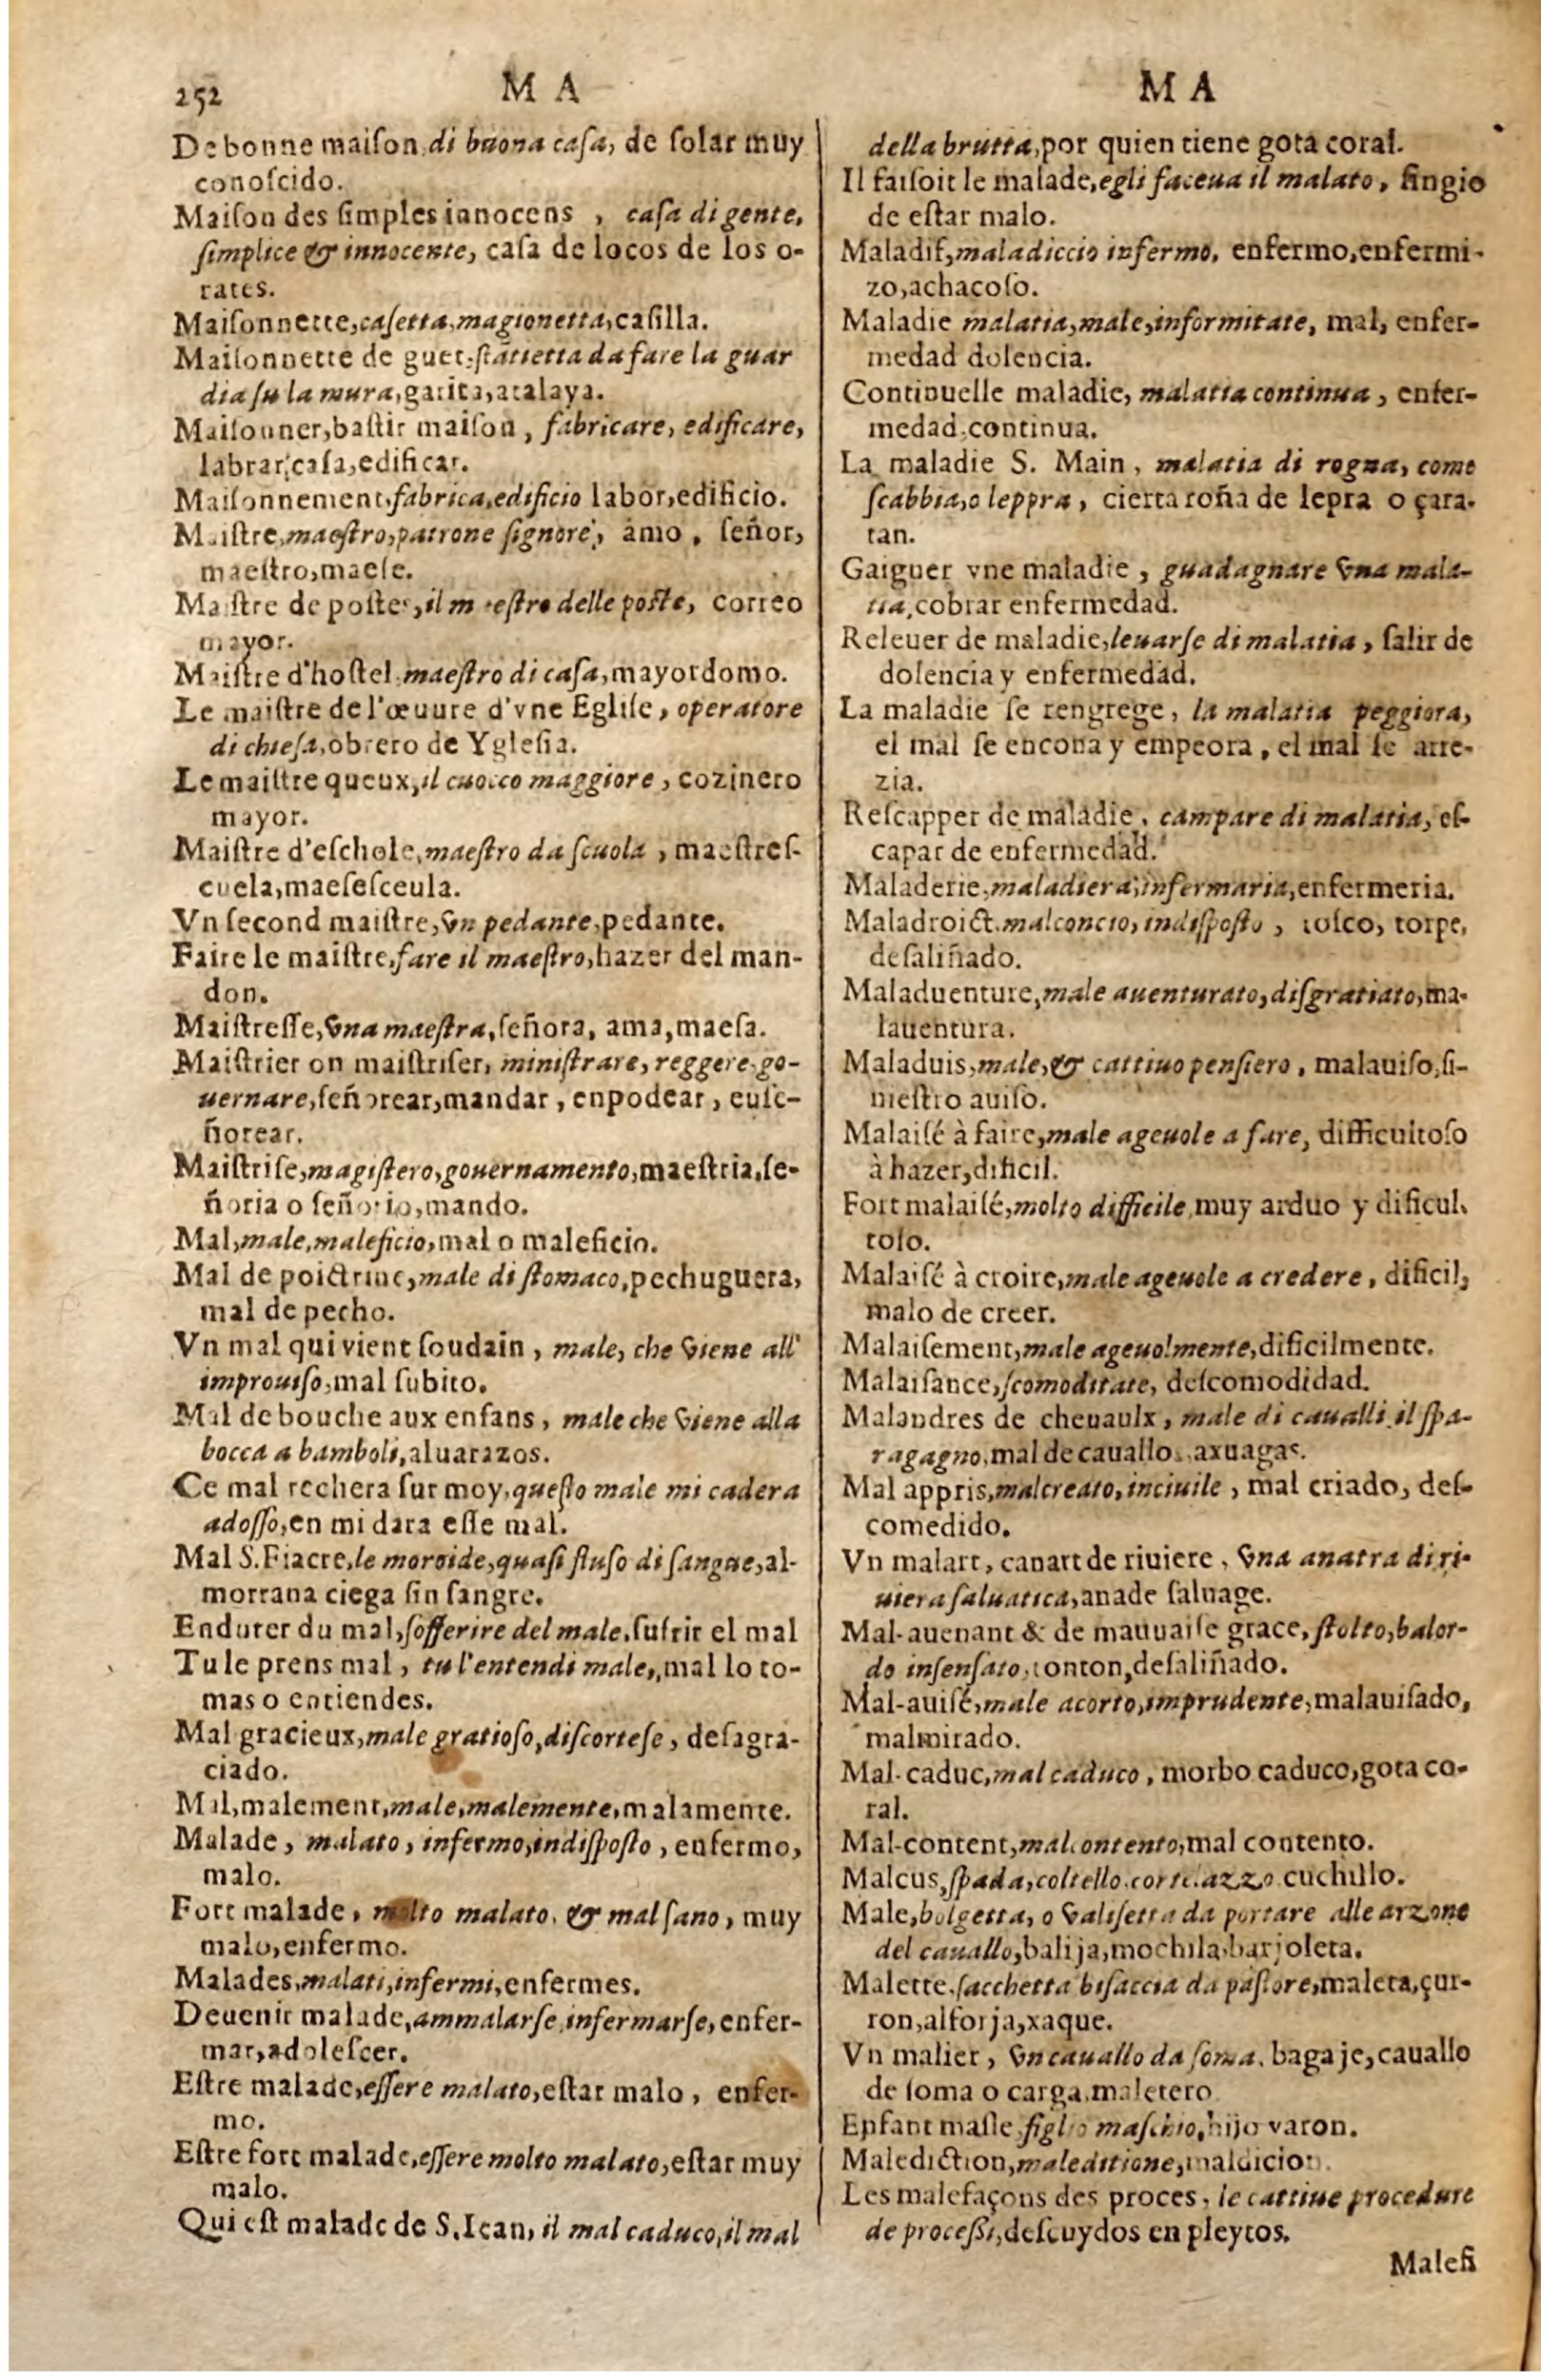 252 M A
M A
De bonne maiſon, di buona caſa, de ſolar muy
conoſcido.
Maiſon des ſimples innocens , caſa di gente,
ſimplice & innocente, caſa de locos de los o-
rates.
Maiſonnette,caſetta,magionetta,caſilla.
Maiſonnette de guet, da fare la guar
dia ſu la mura,garita,atalaya.
Maiſonner,baſtir maiſon , fabricare, edificare,
labrar caſa,edificar.
Maiſonnement,fabrica,edificio labor,edificio.
Maiſtre,maeſtro,patrone ſignore, amo , ſeñor,
maeſtro,maeſe.
Maiſtre de poſtes,il maeſtro delle poſte, correo
mayor.
Maiſtre d'hoſtel,maeſtro di caſa,mayordomo.
Le maiſtre de l'œuure d'vne Egliſe, operatore
di chieſa,obrero de Ygleſia.
Le maiſtre queux,il cuocco maggiore , cozinero
mayor.
Maiſtre d'eſchole,maeſtro da ſcuola , maeſtreſ-
cuela,maeſeſceula.
Vn ſecond maiſtre,vn pedante,pedante.
Faire le maiſtre,fare il maeſtro,hazer del man-
don.
Maiſtreſſe,vna maeſtra,ſeñora, ama,maeſa.
Maiſtrier on maiſtriſer, miniſtrare, reggere,go-
uernare,ſeñorear,mandar , enpodear , euſe-
ñorear.
Maiſtriſe,magiſtero,gouernamento,maeſtria,ſe-
ñoria o ſeñorio,mando.
Mal,male,maleficio,mal o maleficio.
Mal de poictrine,male di ſtomaco,pechuguera,
mal de pecho.
Vn mal qui vient ſoudain , male, che viene all'
improuiſo,mal ſubito.
Mal de bouche aux enfans , male che viene alla
bocca a bamboli,aluarazos.
Ce mal rechera ſur moy,queſto male mi cadera
adoſſo,en mi dara eſſe mal.
Mal S.Fiacre,le moroide,quaſi fluſo di ſangue,al-
morrana ciega ſin ſangre.
Endurer du mal,ſofferire del male,ſufrir el mal
Tu le prens mal , tu l'entendi male,,mal lo to-
mas o entiendes.
Mal gracieux,male gratioſo,diſcorteſe , deſagra-
ciado.
Mal,malement,male,malemente,malamente.
Malade , malato , infermo,indiſpoſto , enfermo,
malo.
Fort malade , molto malato, & mal ſano , muy
malo,enfermo.
Malades,malati,infermi,enfermes.
Deuenir malade,ammalarſe,infermarſe,enfer-
mar,adoleſcer.
Eſtre malade,eſſere malato,eſtar malo , enfer-
mo.
Eſtre fort malade,eſſere molto malato,eſtar muy
malo.
Qui eſt malade de S.Iean, il mal caduco,il mal
della brutta,por quien tiene gota coral.
Il faiſoit le malade,egli faceua il malato , fingio
de eſtar malo.
Maladif,maladiccio infermo, enfermo,enfermi-
zo,achacoſo.
Maladie malatia,male,informitate, mal, enfer-
medad dolencia.
Continuelle maladie, malatia continua , enfer-
medad,continua.
La maladie S. Main , malatia di rogna, come
ſcabbia,o leppra , cierta roña de lepra o çara-
tan.
Gaiguer vne maladie , guadagnare vna mala-
tia,cobrar enfermedad.
Releuer de maladie,leuarſe di malatia , ſalir de
dolencia y enfermedad.
La maladie ſe rengrege , la malatia peggiora,
el mal ſe encona y empeora , el mal ſe arre-
zia.
Reſcapper de maladie , campare di malatia, eſ-
capar de enfermedad.
Maladerie,maladiera,infermaria,enfermeria.
Maladroict,malconcio,indiſpoſto , toſco, torpe,
deſaliñado.
Maladuenture,male auenturato,diſgratiato,ma-
lauentura.
Maladuis,male,& cattiuo penſiero , malauiſo,ſi-
nieſtro auiſo.
Malaiſé à faire,male ageuole a fare, difficultoſo
à hazer,dificil.
Fort malaiſé,molto difficile,muy arduo y dificul-
toſo.
Malaiſé à croire,male ageuole a credere , dificil,
malo de creer.
Malaiſement,male ageuolmente,dificilmente.
Malaiſance,ſcomoditate, deſcomodidad.
Malandres de cheuaulx , male di caualli,il ſpa-
ragagno,mal de cauallo, axuagas.
Mal appris,malcreato,inciuile , mal criado, deſ-
comedido.
Vn malart, canart de riuiere , vna anatra di ri-
uiera ſaluatica,anade ſaluage.
Mal-auenant & de mauuaiſe grace, ſtolto,balor-
do inſenſato,tonton,deſaliñado.
Mal-auiſé,male acorto,imprudente,malauiſado,
malmirado.
Mal-caduc,mal caduco , morbo caduco,gota co-
ral.
Mal-content,malcontento,mal contento.
Malcus,ſpada,coltello,cortelazzo cuchillo.
Male,bolgetta, o valiſetta da portare alle arzone
del cauallo,balija,mochila,barjoleta.
Malette,ſacchetta biſaccia da paſtore,maleta,çur-
ron,alforja,xaque.
Vn malier , vn cauallo da ſoma, bagaje,cauallo
de ſoma o carga,maletero
Enfant maſle,figlio maſchio,hijo varon.
Malediction,maleditione,maldicion.
Les malefaçons des proces , le cattiue procedure
de proceſſi,deſcuydos en pleytos.
Malefi